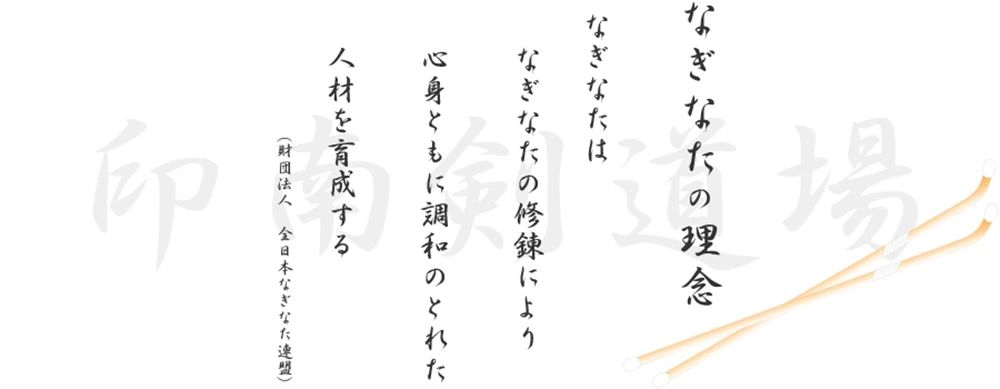 なぎなたの理念
なぎなたは
なぎなたの修錬により
心身ともに調和のとれた
人材を育成する
(財団法人　全日本なぎなた連盟)
印南剣道場